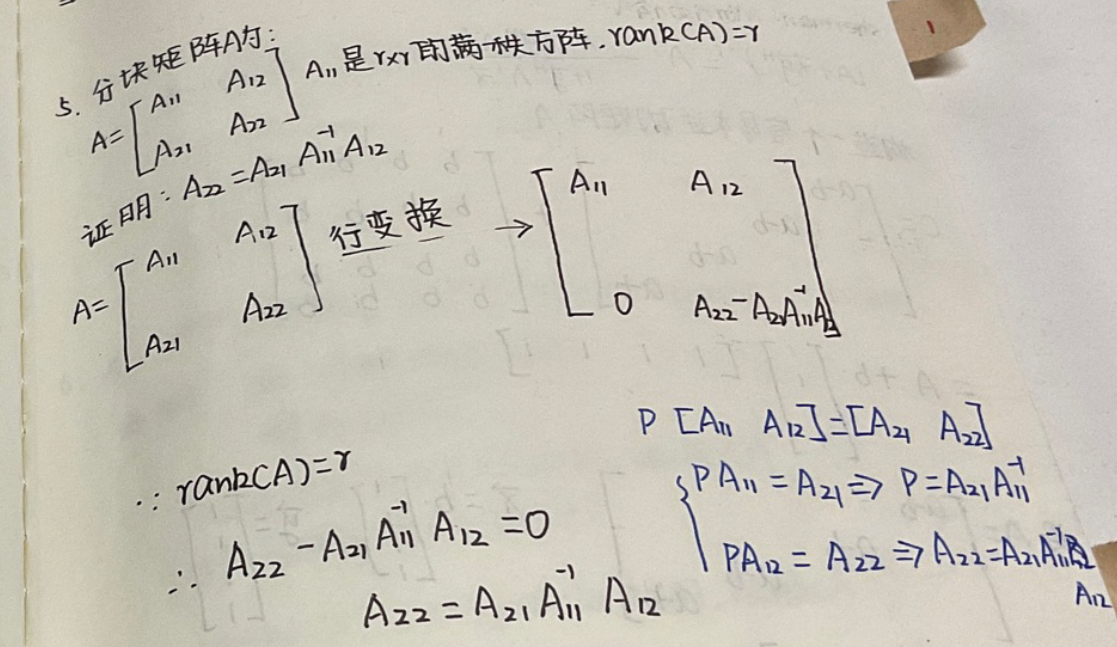 5. 分块矩阵A为:
A=[A₁₁ A₁₂
A₂₁ A₂₂] A₁₁是r×r的满秩方阵.rank(A)=r
证明: A₂₂=A₂₁A₁₁⁻¹A₁₂
A=[A₁₁ A₁₂
A₂₁ A₂₂] 行变换 → [A₁₁ A₁₂
0 A₂₂-A₂₁A₁₁⁻¹A₁₂]
∵ rank(A)=r
∴ A₂₂-A₂₁A₁₁⁻¹A₁₂=0
A₂₂=A₂₁A₁₁⁻¹A₁₂
P[A₁₁ A₁₂]=[A₂₁ A₂₂]
{PA₁₁=A₂₁⇒P=A₂₁A₁₁⁻¹
PA₁₂=A₂₂⇒A₂₂=A₂₁A₁₁⁻¹
A₁₂
1